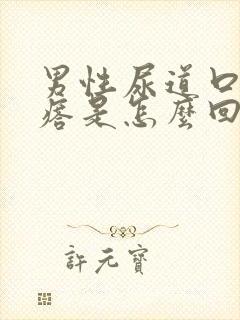 男性尿道口
痞是怎麼回
許元寶